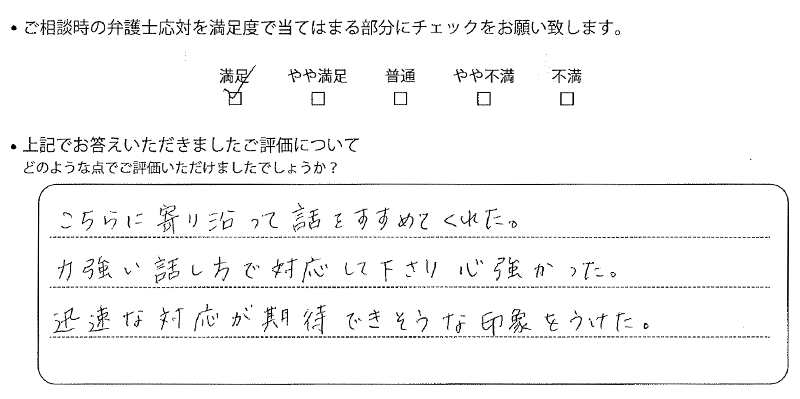 • ご相談時の弁護士応対を満足度で当てはまる部分にチェックをお願い致します。
満足 やや満足 普通 やや不満 不満
☑ □ □ □ □
• 上記でお答えいただきましたご評価について
どのような点でご評価いただけましたでしょうか？
こちらに寄り沿って話をすすめてくれた。
力強い話し方で対応して下さり心強かった。
迅速な対応が期待できそうな印象をうけた。